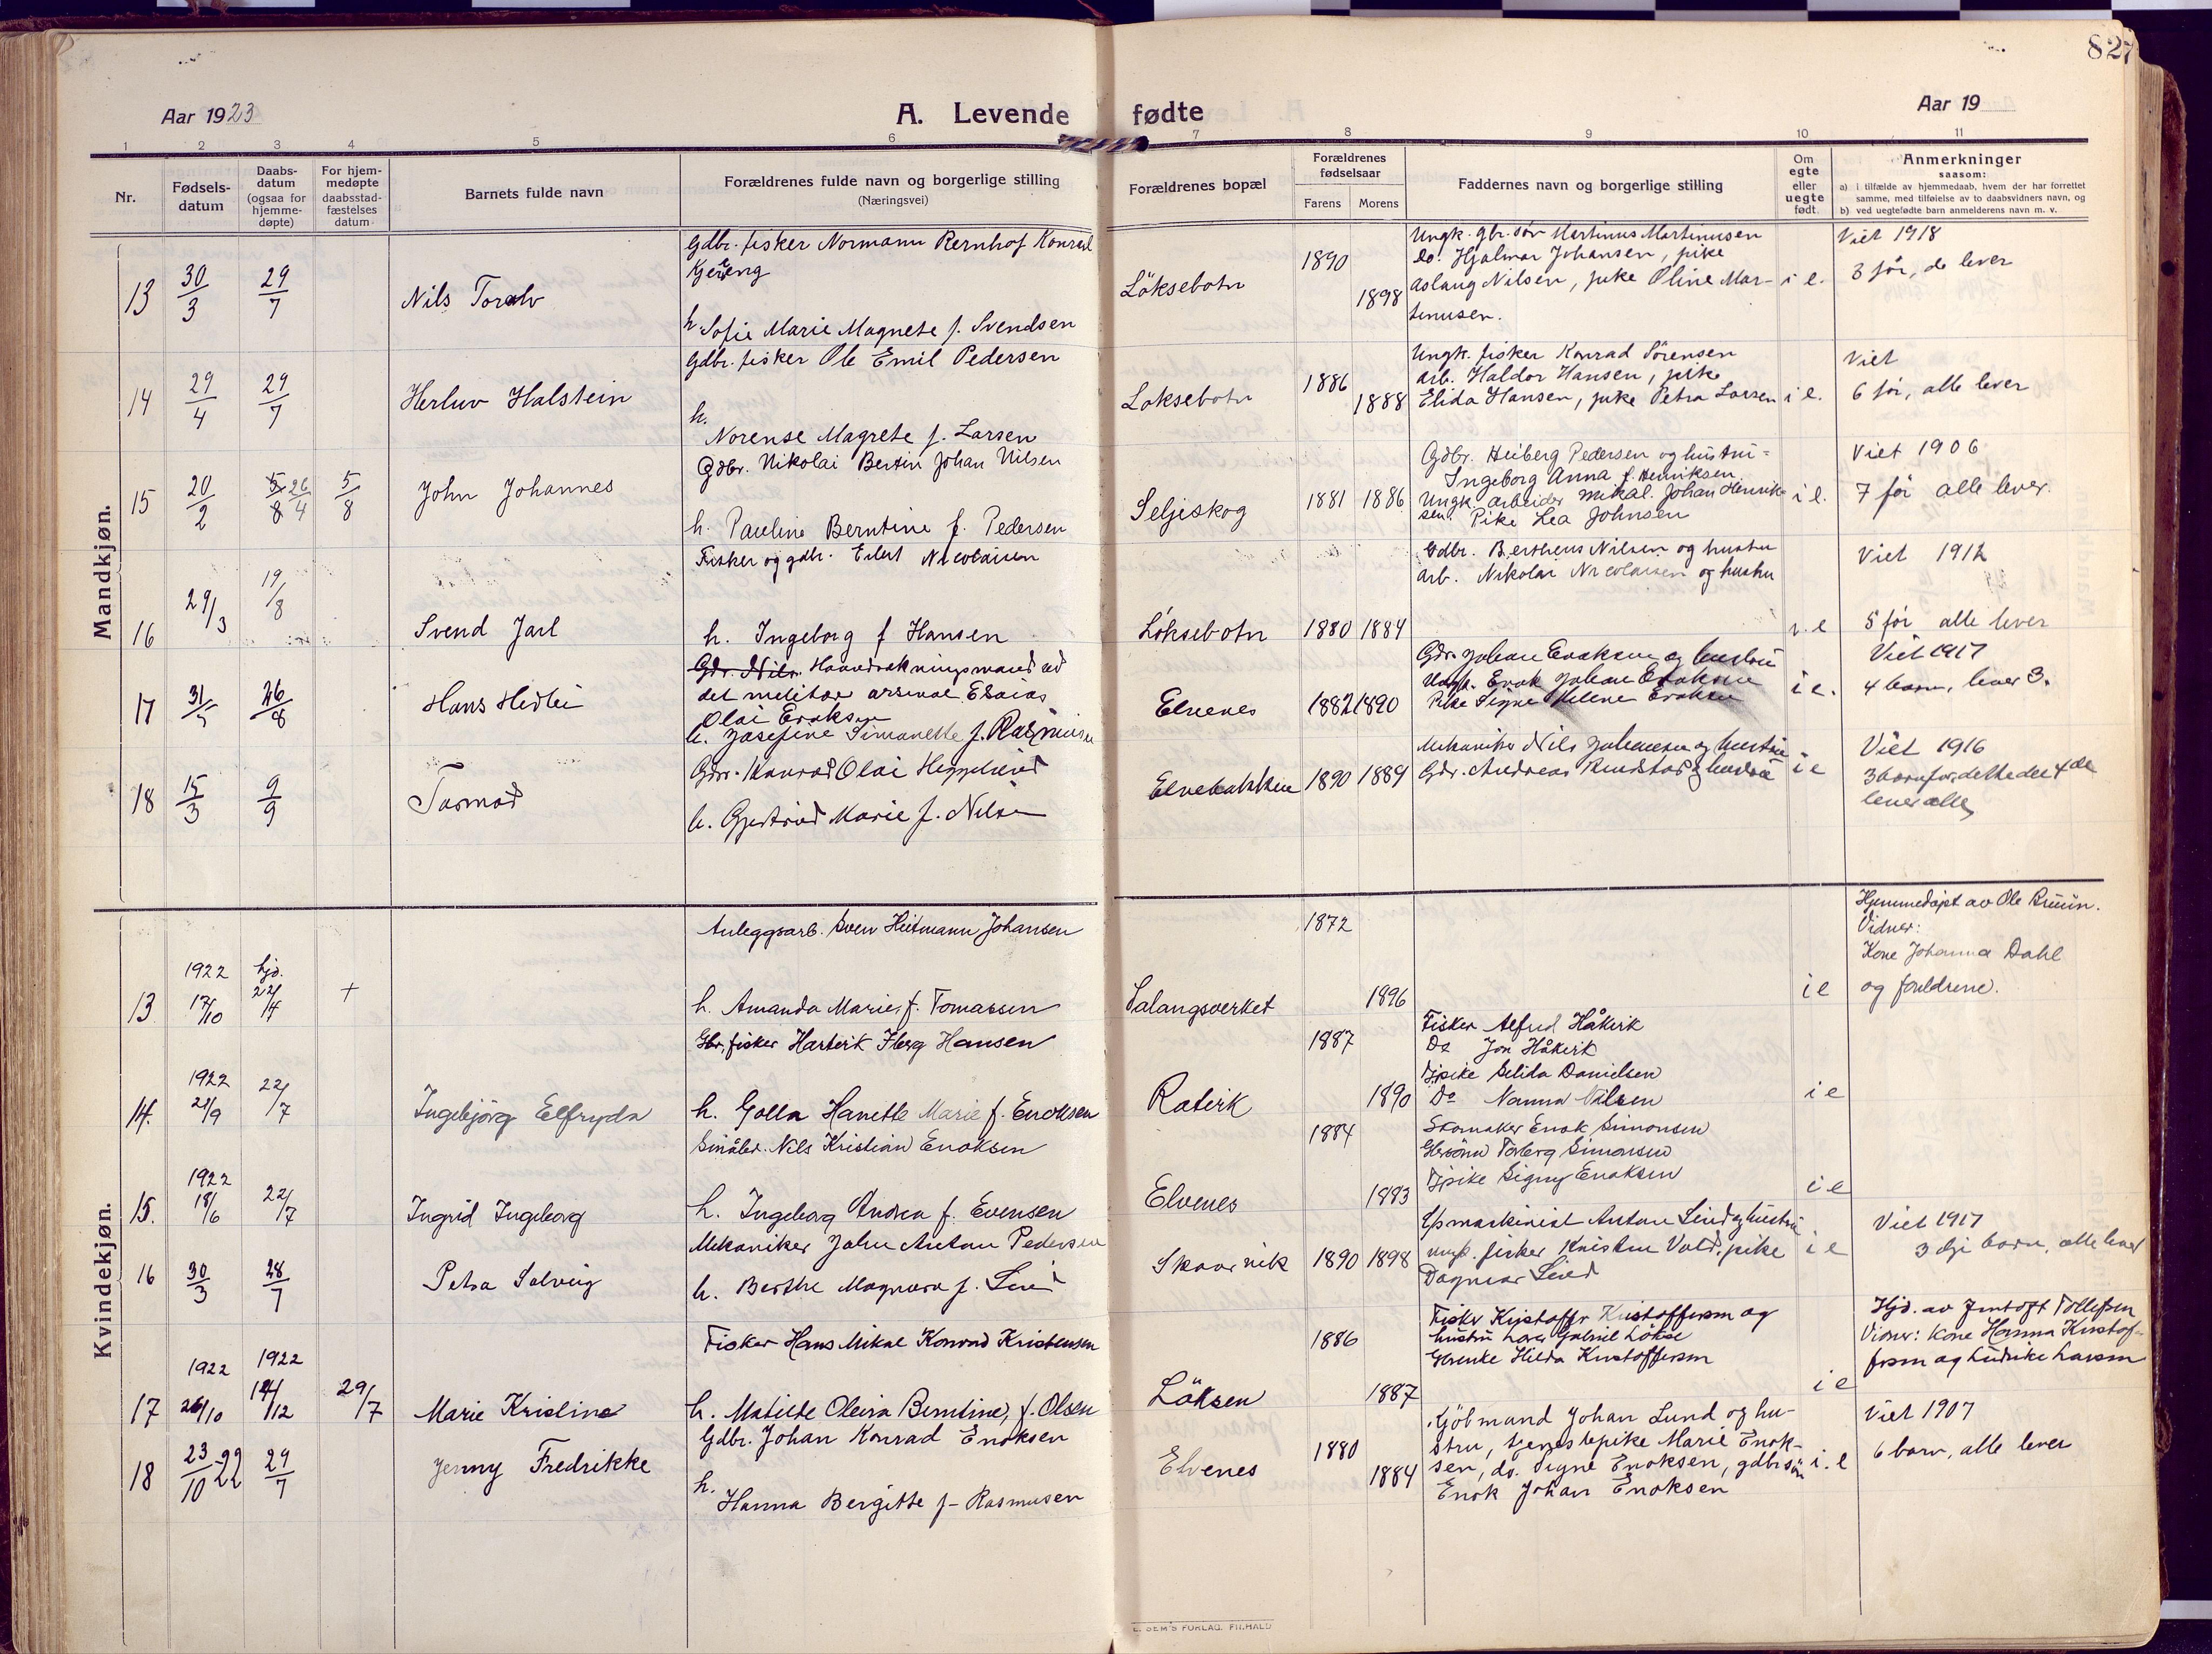 827
Aar 1923
A. Levende fødte
Aar 19
1 2 3 4 5 6 7 8 9 10 11
Nr.
Fødsels-
datum
Daabs-
datum
(ogsaa for
hjemme-
døpte)
For hjem-
medøpte
daabsstad-
fæstelses
datum
Barnets fulde navn
Forældrenes fulde navn og borgerlige stilling
(Næringsvei)
Forældrenes bopæl
Forældrenes
fødselsaar
Farens Morens
Faddernes navn og borgerlige stilling
Om
egte
eller
uegte
født.
Anmerkninger
saasom:
a) i tilfælde av hjemmedaab, hvem der har forrettet
samme, med tilføielse av to daabsvidners navn, og
b) ved uegtefødte barn anmelderens navn m. v.
Mandkjøn.
13 30/3 29/7 Nils Toralv
Gdbr. fisker Normann Bernhof Konrad
h. Sofie Marie Magnete f. Svendsen
Löksebotn 1890 1898
Ungk. gbr. søn Martinus Martinusen
do. Hjalmar Johansen, pike
Aslaug Nilsen, pike Oline Mar-
tinusen.
i e.
Viet 1918
3 før, de lever
14 29/4 29/7 Herluv Halstein
Gdbr. fisker Ole Emil Pedersen
h.
Norense Magrete f. Larsen
Loksebotn 1886 1888
Ungk. fisker Konrad Sörensen
arb. Haldor Hansen, pike
Elida Hansen, pike Petra Larsen
i e.
Viet
6 før, alle lever
15 20/2 5/8 26/4 5/8 John Johannes
Gdbr. Nikolai Bertin Johan Nilsen
h. Pauline Berntine f. Pedersen
Seljeskog 1881 1886
Gdbr. Heiberg Pedersen og hustru =
Ingeborg Anna f. Henriksen
Ungk. arbeider Mikal Johan Henrik-
sen. Pike Lea Johnsen
i e.
Viet 1906
7 før alle lever.
16 29/3 19/8 Svend Jarl
Fisker og gdbr. Edert Nicolaisen
h. Ingeborg f Hansen
Löksebotn 1880 1884
Gdbr. Bertheus Nilsen og hustru
Arb. Nikolai Nicolaisen og hustru
i.e
Viet 1912
5 før alle lever
17 31/3 26/8 Hans Hedlei
Gdr. Nils Haandrækningsmand ved
det militær arsenal Esaias
Olai Enoksen
h. Josefine Simonette f. Rasmusen
Elvenes 1882 1890
Gdr. Johan Enoksen og hustru
Ungk. Enok Johan Enoksen
Pike Signe Helene Enoksen
i e.
Viet 1917
4 barn, lever 3.
18 15/3 9/9 Tormod
Gdr. Konrad Olai Heggelund
h. Gjertrud Marie f. Nilsen
Elvebakken 1890 1889
Mekaniker Nils Johansen og hustru
Gdr. Andreas Rundstad og hustru
i e
Viet 1916
3 barn før, dette det 4de
lever alle
Kvindekjøn.
13 1922 17/10 hjd. 22/4 +
Anleggsarb. Sven Heitmann Johansen
h. Amanda Marie, f. Tomassen
Salangsverket 1872 1896
i e
Hjemmedøpt av Ole Bruun.
Vidner:
Kone Johanna Dahl
og foreldrene.
14. 1922 21/9 22/7 Ingebjörg Elfryda
Gbr, fisker Harterik Iberg Hansen
h. Golla Hanette Marie f. Enoksen
Roterk 1887 1890
Fisker Alfred Håkerk
Do Jon Håkerk
Tjpike Selida Danielsen
Do Nanna Nilsen
i e
15. 1922 18/6 22/7 Ingrid Ingeborg
Småbr. Nils Kristian Enoksen
h. Ingeborg Andrea f. Evensen
Elvenes 1884 1883
Skomaker Enok Simonsen
Gbrsönn Torberg Simonsen
Tjpike Signy Enoksen
i e
16 30/3 28/7 Petra Solveig
Mekaniker John Anton Pedersen
h. Berthe Magnora f. Lind
Skaarvik 1890 1898
E/s maskinist Anton Lind og hustru
ungk. fisker Kristen Vold, pike
Dagmar Lind
i e
Viet 1917
3dje barn, alle lever
17 1922 26/10 1922 14/12 29/7 Marie Kristine
Fisker Hans Mikal Konrad Kristensen
h. Matilde Oleira Berntine, f. Olsen
Löksen 1886 1887
Fisker Kristoffer Kristoffersen og
hustru Lovra Gabriel Lökse
Gbrenke Hilda Kristoffersen
i e
Hjd. av Jentoft Tollefsen
Vidner: Kone Hanna Kristof-
fersen og Ludrike Larsen
18 23/10 22 29/7 Jenny Fredrikke
Gdbr. Johan Konrad Enoksen
h.
Hanna Bergitte f- Rasmusen
Elvenes 1880 1884
Gjöbmand Johan Lund og hu-
stru, tjenestepike Marie Enok-
sen, do. Signe Enoksen, gdbrsön
Enok Johan Enoksen
i. e
Viet 1907
6 barn, alle lever
E. SEM'S FORLAG. FR.HALD